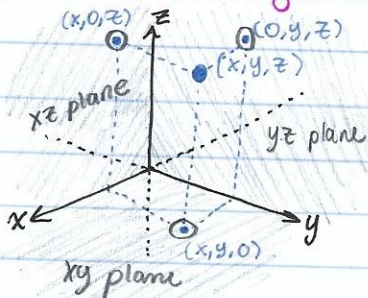 z
(x,0,z)
(0,y,z)
(x,y,z)
xz plane
yz plane
x
y
(x,y,0)
xy plane